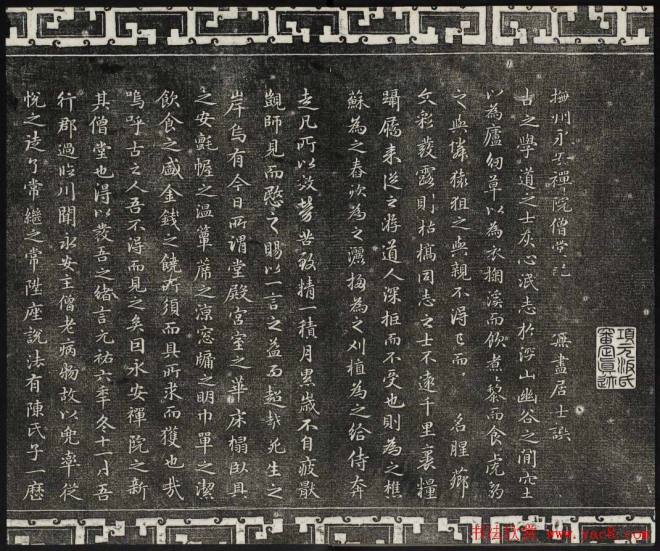 撫州永安禪院僧堂記　無盡居士譔
古之學道之士灰心泯志於深山幽谷之間穴土
以為廬紉草以為衣掬溪而飲煮藜而食虎豹
之與鄰猿狙之與親不得已而名腥薌
文彩發露則枯槁同志之士不遠千里裹糧
躡屩來從之游道人深拒而不受也則為之樵
蘇為之舂炊為之灑掃為之刈植為之給侍奔
走凡所以效勞苦致精一積月累歲不自疲厭
覬師見而愍之賜以一言之益而超越死生之
岸烏有今日所謂堂殿宮室之華床榻臥具
之安氈幄之溫簟席之涼窓牖之明巾單之潔
飲食之盛金錢之饒所須而具所求而獲也哉
嗚呼古之人吾不得而見之矣曰永安禪院之新
其僧堂也得以發吾之緒言元祐六年冬十一月吾
行郡過臨川聞永安主僧老病物故以兜率從
悅之徒了常繼之常陞座說法有陳氏子一歷
項元汴氏審定真跡
书法欣赏 www.yac8.com